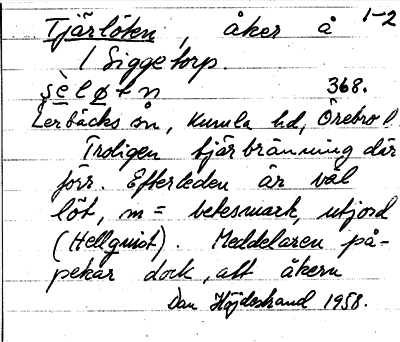 Tjärlöten, åker å 1-2
1 Siggetorp.
ṣèḷøtn 368.
Lerbäcks sn, Kumla hd, Örebro l
Troligen tjärbränning där
förr. Efterleden är väl
löt, m = betesmark, utjord
(Hellquist). Meddelaren på-
pekar dock, att åkern
Dan Höjdestrand 1958.